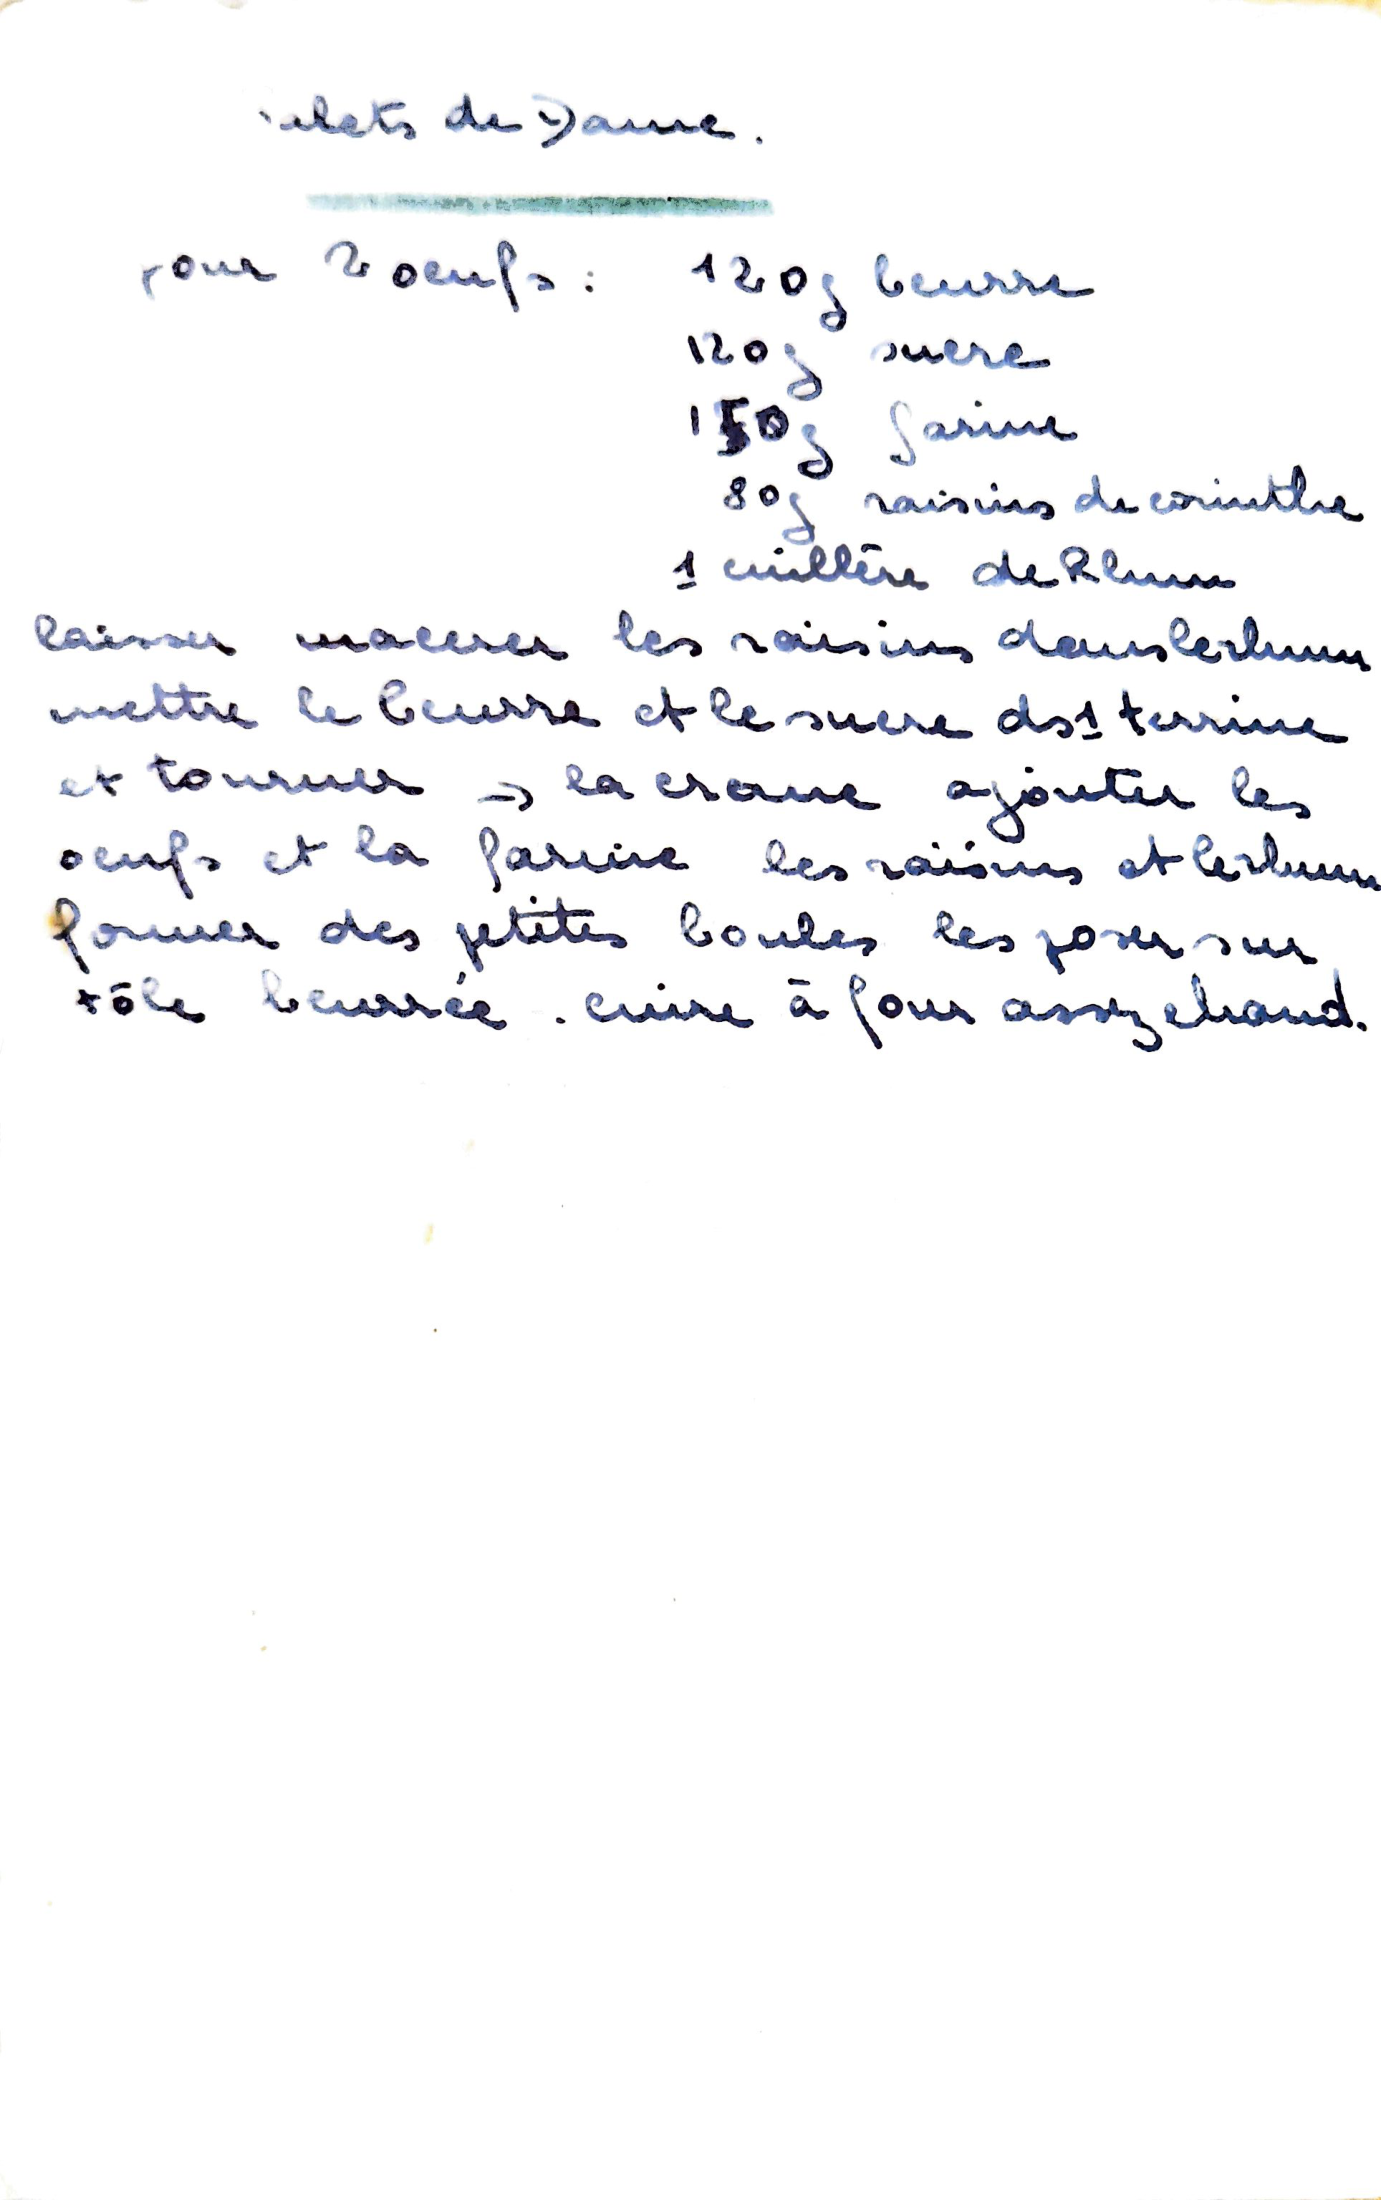 Palets de Dame.
pour 2 oeufs : 120g beurre
120g sucre
150g farine
80g raisins de corinthe
1 cuillère de Rhum
laisser macerer les raisins dans le rhum
mettre le beurre et le sucre ds 1 terrine
et tourner → la creme ajouter les
oeufs et la farine les raisins et le rhum
former des petites boules les poser sur
tôle beurrée . cuire à four assez chaud.